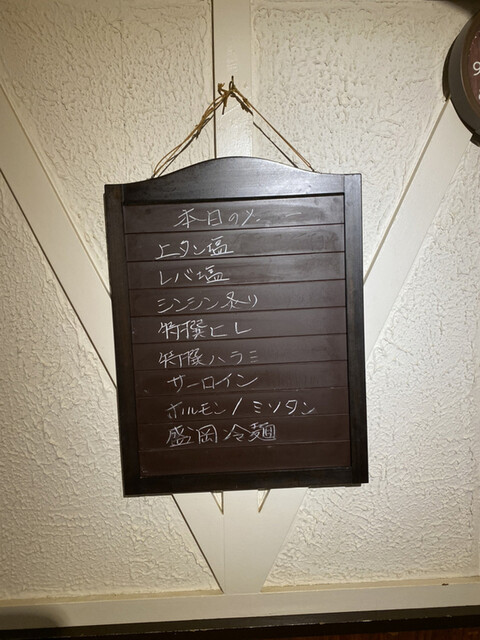 本日の〆
上タン塩
レバ塩
シンシン炙り
特撰ヒレ
特撰ハラミ
サーロイン
ホルモン/ミソタン
盛岡冷麺
9